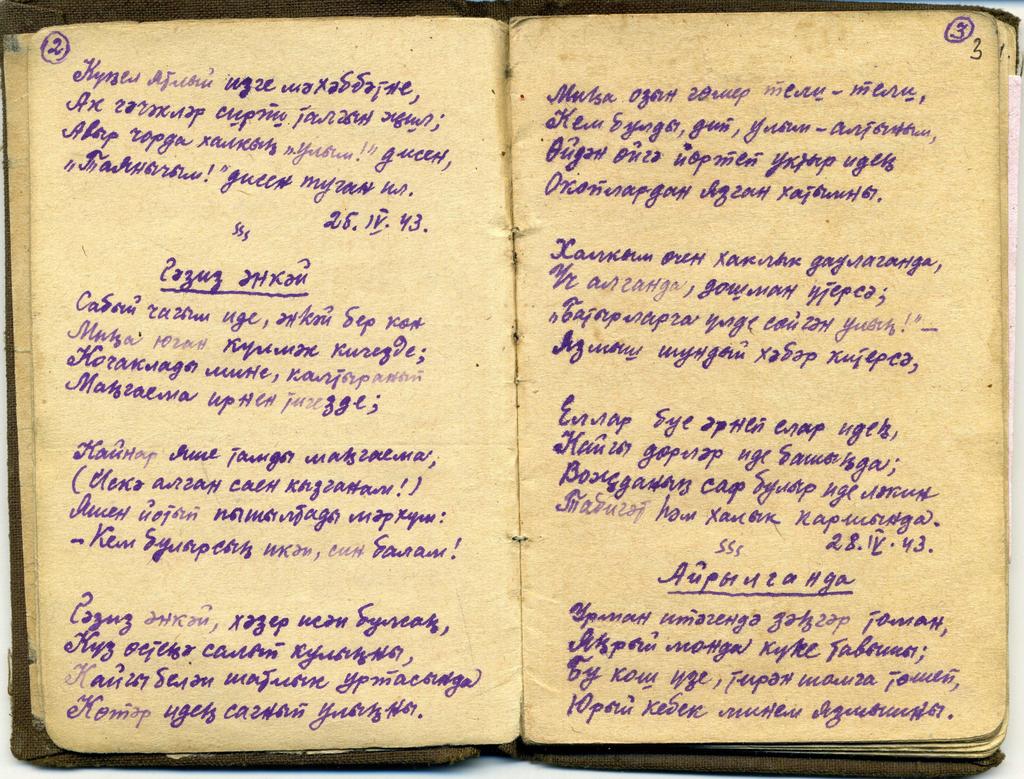 2
Күңел ятлый изге мәхәббәтне,
Ак чәчәкләр сирпи талгын җил;
Авыр чорда халкың „улым!” дисен,
„Таянычым!” дисен туган ил.
25.IV.43.
Газиз әнкәй
Сабый чагым иде, әнкәй бер көн
Миңа юган күлмәк кигезде;
Кочаклады мине, калтыранып
Маңгаема ирнен тигезде;
Кайнар яше тамды маңгаема,
(Искә алган саен кызганам!)
Яшен йотып пышылдады мәрхүм:
– Кем булырсың икән, син балам!
Газиз әнкәй, хәзер исән булсаң,
Күз өстеңә салып кулыңны,
Кайгы белән шатлык уртасында
Көтәр идең сагынып улыңны.
3
3
Миңа озын гөмер тели-тели,
Кем булды, дип, улым-алтыным,
Өйдән өйгә йөртеп укытыр идең
Окоплардан язган хатымны.
Халкым өчен хаклык даулаганда,
Үч алганда, дошман үтерсә;
„Батырларча үлде сөйгән улың!”–
Язмыш шундый хәбәр китерсә,
Еллар буе әрнеп елар идең,
Кайгы дөрләр иде башыңда;
Вождданың саф булыр иде ләкин
Табигат һәм халык каршында.
28.IV.43.
Айрылганда
Урман итәгендә зәңгәр томан,
Яңрый монда күке тавышы;
Бу кош үзе, тирән шомга төшеп,
Юрый кебек минем язмышны.